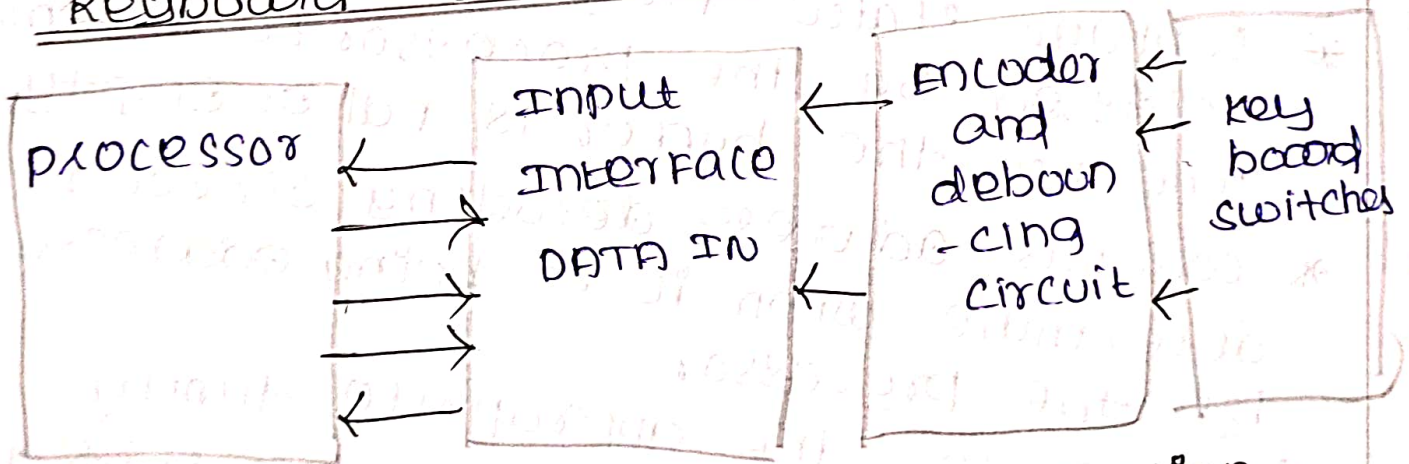 Keyboard
processor
Input
Interface
DATA IN
Encoder
and
deboun
-cing
circuit
key
board
switches